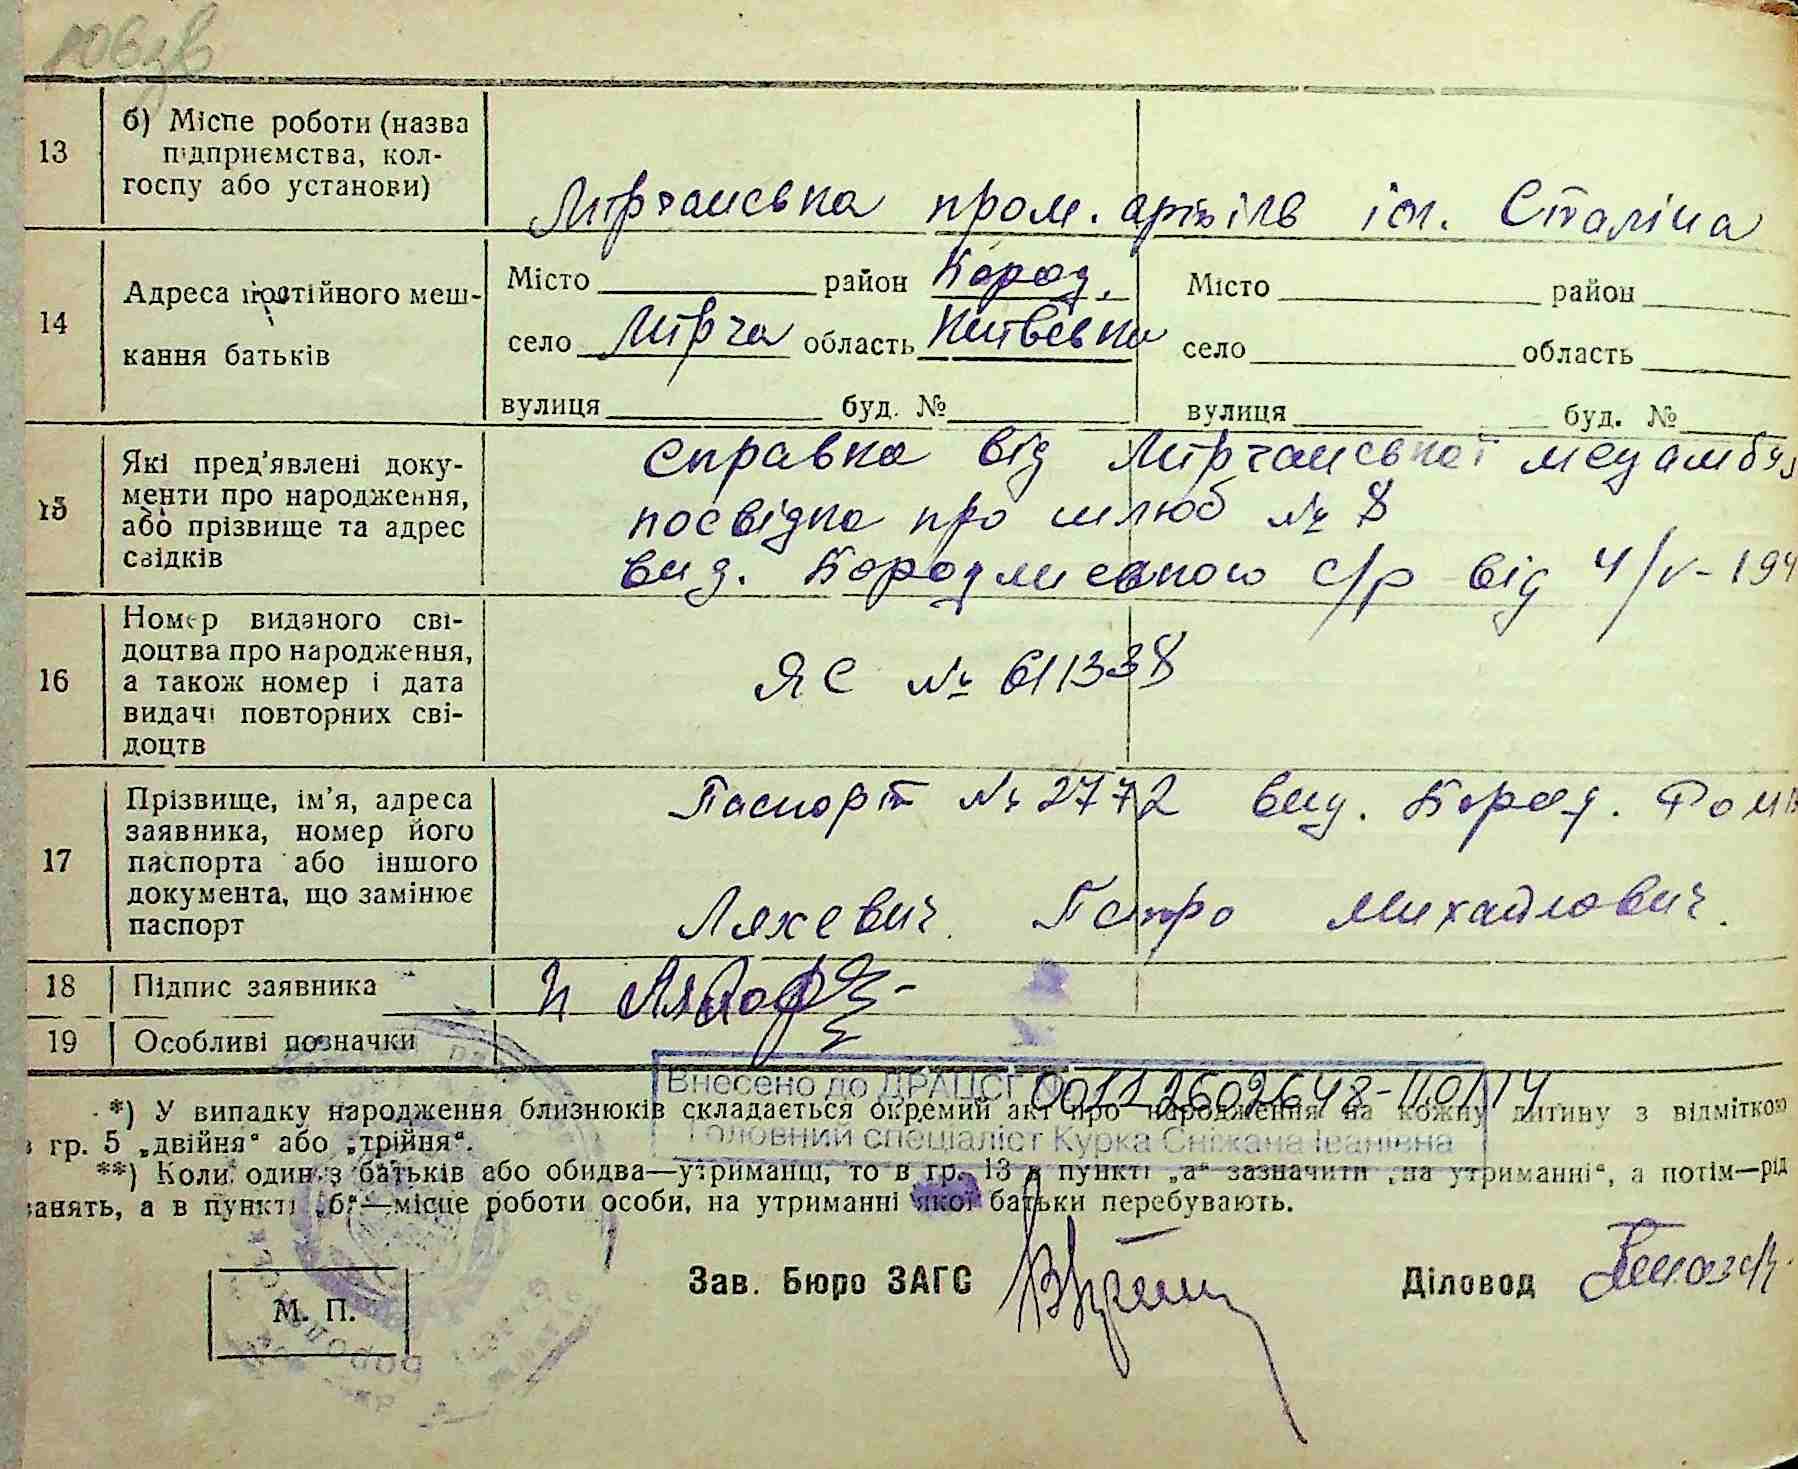 13
б) Місце роботи (назва
підприємства, кол-
госпу або установи)
Мирчанська пром. артіль ім. Сталіна
14
Адреса постійного меш-
кання батьків
Місто район Бород.
село Мирча область Київська
вулиця буд. №
Місто район
село область
вулиця буд. №
15
Які пред'явлені доку-
менти про народження,
або прізвище та адрес
свідків
справка від Мирчанської медамбул
посвідка про шлюб № 8
вид. Бородянською с/р від 4/V-194
16
Номер виданого сві-
доцтва про народження,
а також номер і дата
видачі повторних сві-
доцтв
ЯС № 611338
17
Прізвище, ім'я, адреса
заявника, номер його
паспорта або іншого
документа, що замінює
паспорт
Паспорт № 2772 вид. Бород.
Ляхевич Петро Михайлович.
18
Підпис заявника
19
Особливі позначки
Внесено до ДРАЦСГ 00112602648-110/14
Головний спеціаліст Курка Сніжана Іванівна
*) У випадку народження близнюків складається окремий акт про народження на кожну дитину з відміткою
в гр. 5 „двійня“ або „трійня“.
**) Коли один з батьків або обидва—утриманці, то в гр. 13 в пункті „а“ зазначити „на утриманні“, а потім—рід
занять, а в пункті „б“—місце роботи особи, на утриманні якої батьки перебувають.
М. П.
Зав. Бюро ЗАГС
Діловод